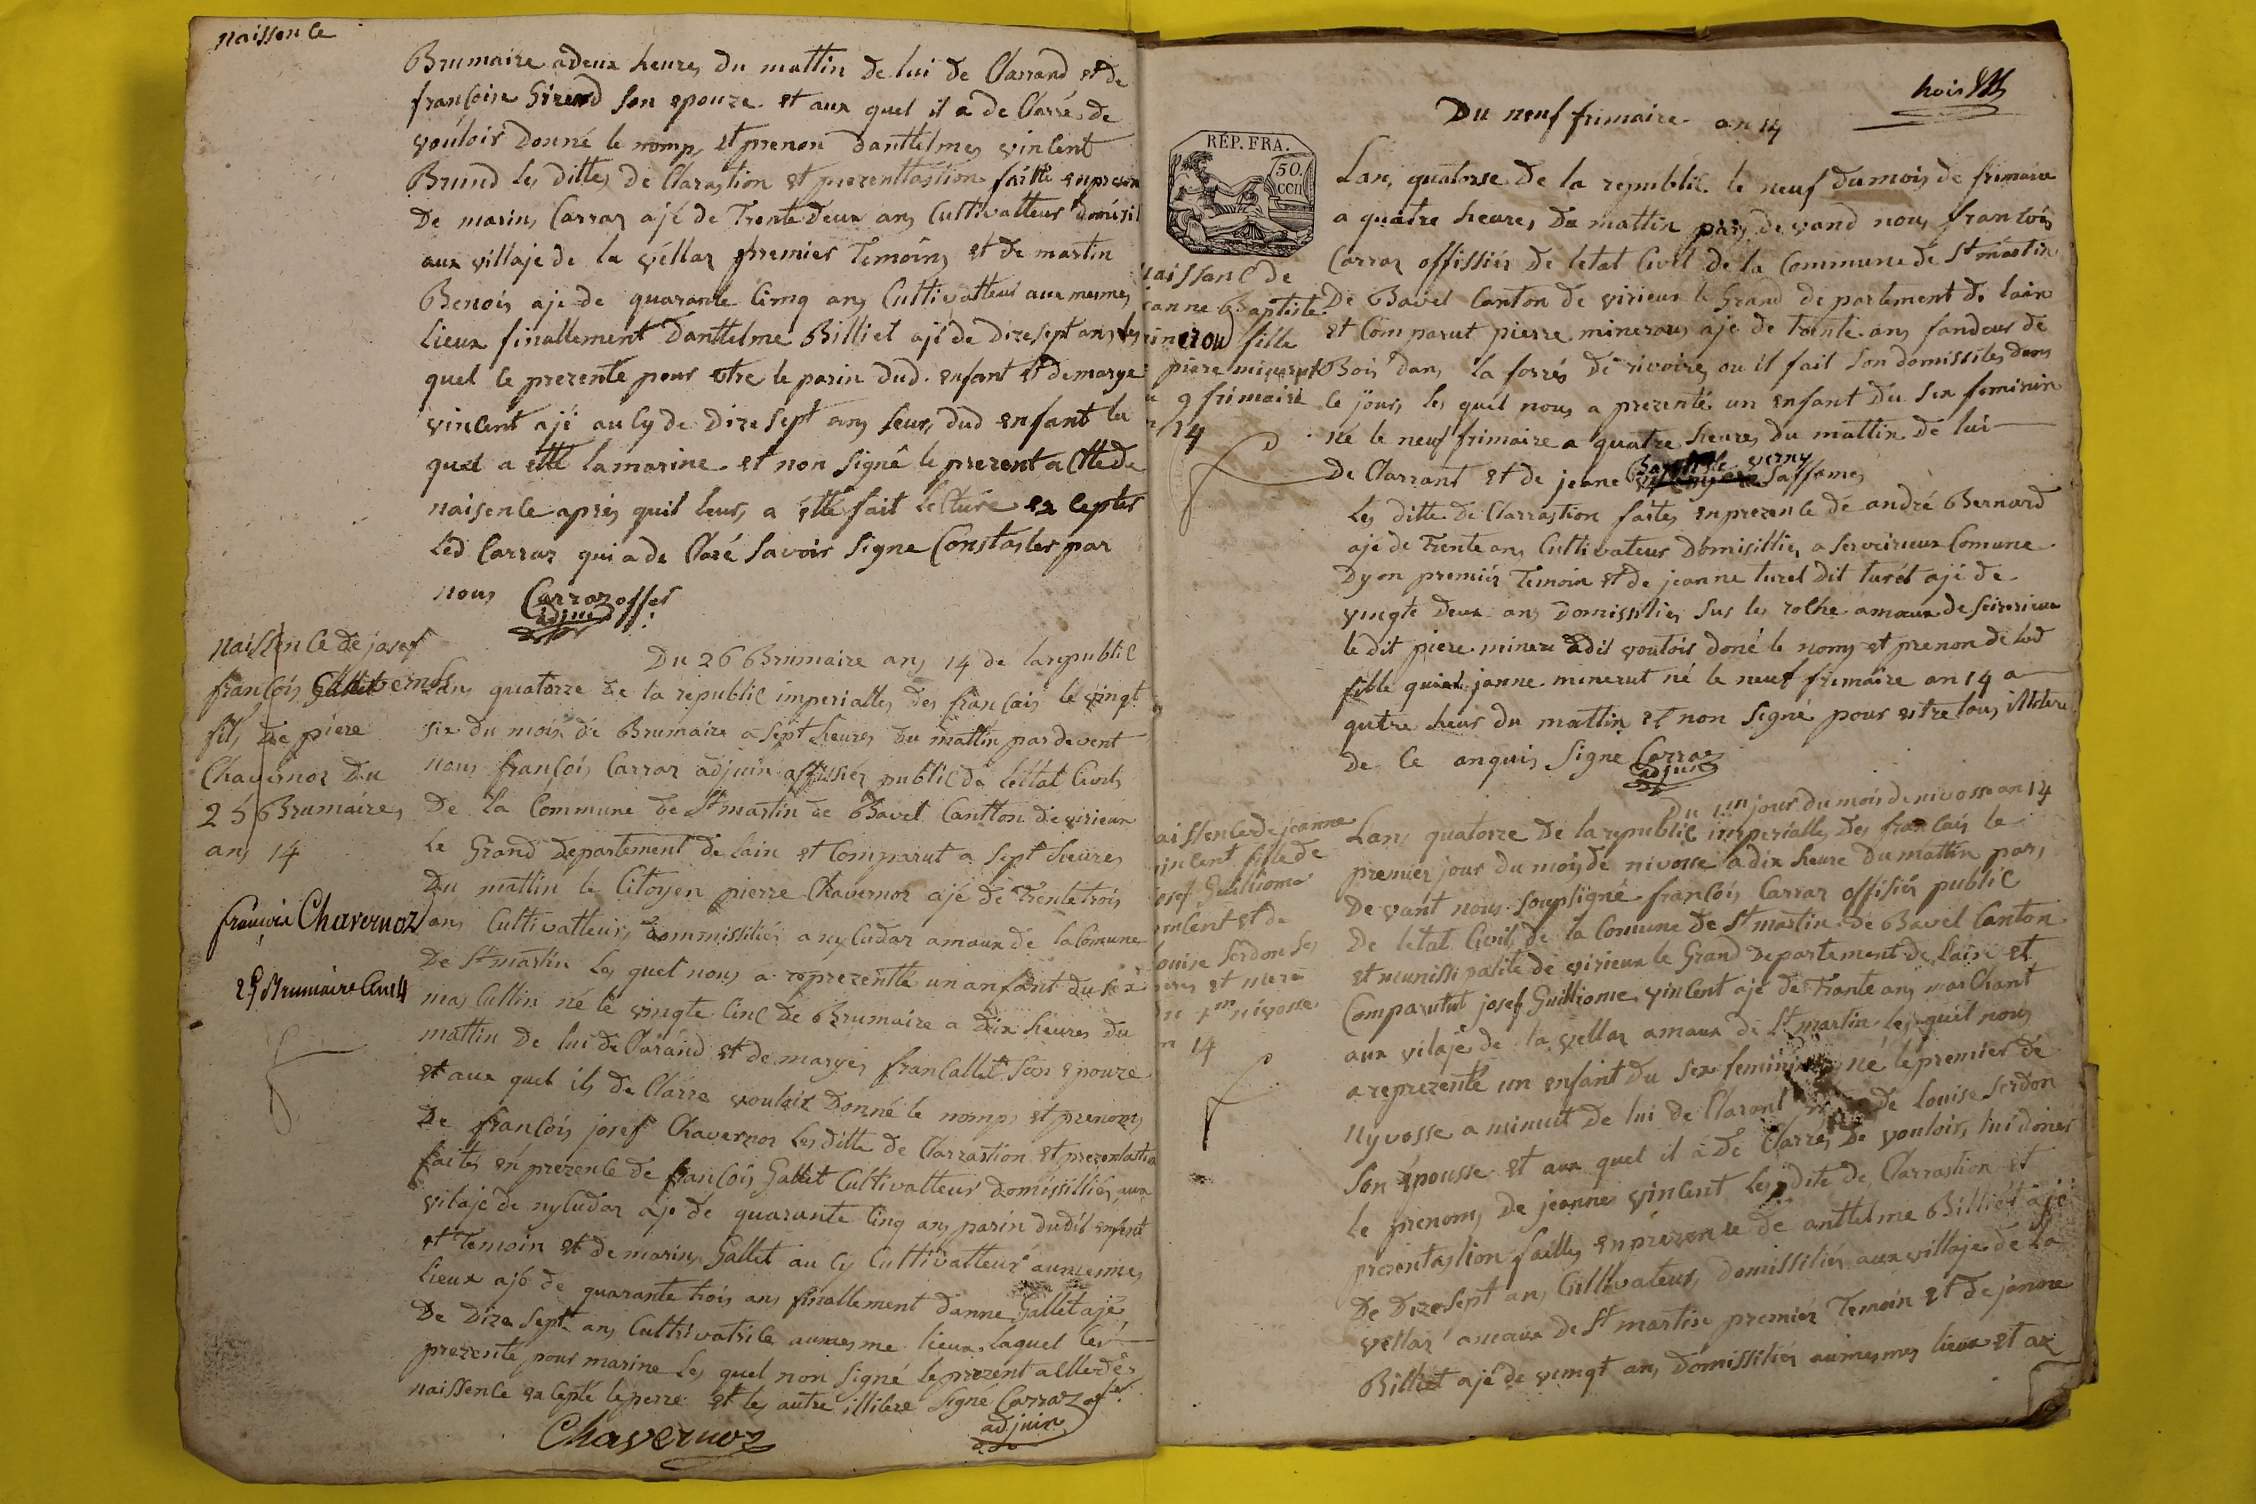 naissence
Brumaire a deux heures du mattin de lui de Clarrand et de
françoise Girerd son epouze et aux quel il a de Clarré de
vouloir Donné le nomps et prenon danthelmes vincent
Brund les dittes de Clarastion et prezenttastion faitte enprezen
De marins Carraz ajé de Trente deux ans Cultivatteur domisil
aux villaje de la véllaz premier Temoins et de martin
Benois aje de quarante Cinq ans Cultivatteur aux mesmes
Lieux finallement Danthelme Billiet ajé de Dizesept ans les
quel ce prezente pour etre le parin dud. enfant et de marye
vincent ajé au Cy de Dizesept ans seur, dud enfant la
quel a etté lamarine et non Signé le prezent actte de
naisence après quil leurs a étté fait lecture excepter
Led Carraz qui a de Claré Savoir Signe Constaster par
nous Carraz offer
adjuin
naissence de josef
françois Gallet Chavernoz
fils de piere
Chavernoz Du
25 Brumaires
ans 14
françois Chavernoz
25 Brumaire an 14
Du 26 Brumaire ans 14 de la republic
Lans quatorze de la republic imperialles des français le vingt
six du mois de Brumaire a Sept heures du mattin par devent
nous françois Carraz adjuin offissiér public de lettat Civils
De la Commune de St martin de Bavel Cantton de virieux
Le Grand Departement de Lain et Comparut a Sept heures
Du mattin le Citoyen pierre Chavernoz ajé de Trente trois
ans Cultivatteurs dommissiliés a nyludaz amaux de la Comune
De St martin Les quel nous a reprezentté un anfant du Sex
mascullin né le vingte Cinc de Brumaire a Dix heures du
mattin De lui de Clarand et de maryes francallet Son epouze
et aux quel ils de Clarre vouloir Donné le nomps et prenoms
De françois josef Chavernoz les ditte de Clarrastion et prezentastion
faites én prezence de françois Gallet Cultivatteur domissilliér aux
vilaje de nyludaz aje de quarante Cinq ans parin dudit enfent
et Temoin et de marins Gallet au Cy Cultivatteur aumesmes
Lieux ajé de quarante trois ans finallement danne Gallet ajé
De Dize Sept ans Cultivatrice aumesme lieux laquel Ces
prezente pour marine Les quel non Signé le prezent actte de
naissence excepté le perre et les autre illitere Signé Carraz ofer
adjuin
Chavernoz
Du neuf frimaire an 14
RÉP. FRA.
50.
CEN
Lans quatorse De la republic le neuf du mois de frimaire
a quatre heures Du mattin pars devand nous françois
Carraz offissiér De letat Civil de la Commune de St martin
De Bavel Canton de virieux le Grand departement de Lain
et Comparut pierre minerous ajé de trente ans fandeur de
Bois dans la forrés de rivoires ou il fait Son domissiles dans
le jours les quel nous a prezenté un enfant Du Sex feminin
né le neuf frimaire a quatre heures du mattin de lui
De Clarrant et de jeane Baptiste verny Saffames
Les ditte de Clarrastion faites enprezence dé andré Bernard
ajé de Trente ans Cultivateur domisilliés a Serveirieux Comune
Dyon premiér Temoin et de jeanne turel Dit turel ajé de
vingte deux ans domissiliés Sur les roche amaux de Seirvirieux
le dit piere minere a dit voulois doné le noms et prenon de lad
fille quiet janne minerut né le neuf frimaire an 14 a
qutre heur du mattin et non Signé pour estre tous illitere
de Ce anquis Signe Carraz
adjuin
naissanc de
jeanne Baptiste
minerou fille
piere minerut
9 frimaire
14
Du 1er jour du mois de nivosse an 14
Lans quatorze De la republic imperialles Des francais le
premier jour du mois de nivosse a dix heure Du mattin pars
Devant nous Soupligné françois Carraz offisiér public
De letat Civil, de la Comune de St martin de Bavel Canton
et munissipalité de virieux le Grand Departement de Lain et
Comparutut josef Guilliome vincent ajé de Trante ans marchant
aux vilaje de la vellaz amaux de St martin lesquel nous
a reprezenté un enfant du Sex feminin né le premier de
Nyvosse a minuit De lui de Clarant de Louise Serdon
Son épousse et aux quel il a dé Clarrés De vouloirs lui donér
Le prenoms De jeanne vincent Les dite de Clarrastion et
prezentastion faittes enprezence de anthelme Billiét ajé
De Dizesept ans Cultivateurs domissiliés aux villaje de la
vellaz amaux de St martin premiér Temoin et De janne
Billiet ajé de vingt ans, domissiliés aumesmes lieux et ax
naissence de jeanne
vincent fille de
josef Guilliome
vincent et de
Louise Serdon Ses
peres et mere
du 1er nivosse
an 14